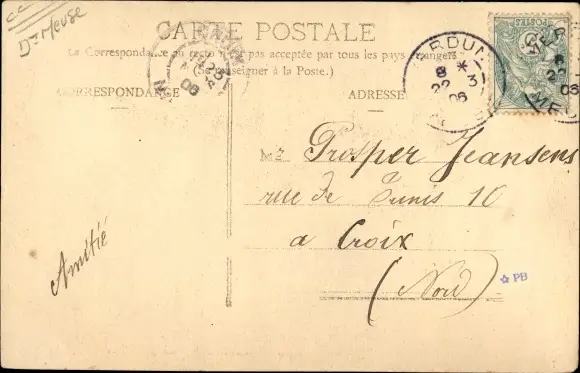 Dt Meuse
CARTE POSTALE
La Correspondance au recto n'est pas acceptée par tous les pays étrangers
(Se renseigner à la Poste.)
CORRESPONDANCE
ADRESSE
VERDUN
8 *
22 3
06
POSTES
5
22
06
23
06
Mr Prosper Jeansens
rue de Tunis 10
a Croix
(Nord)
Amitié
PB